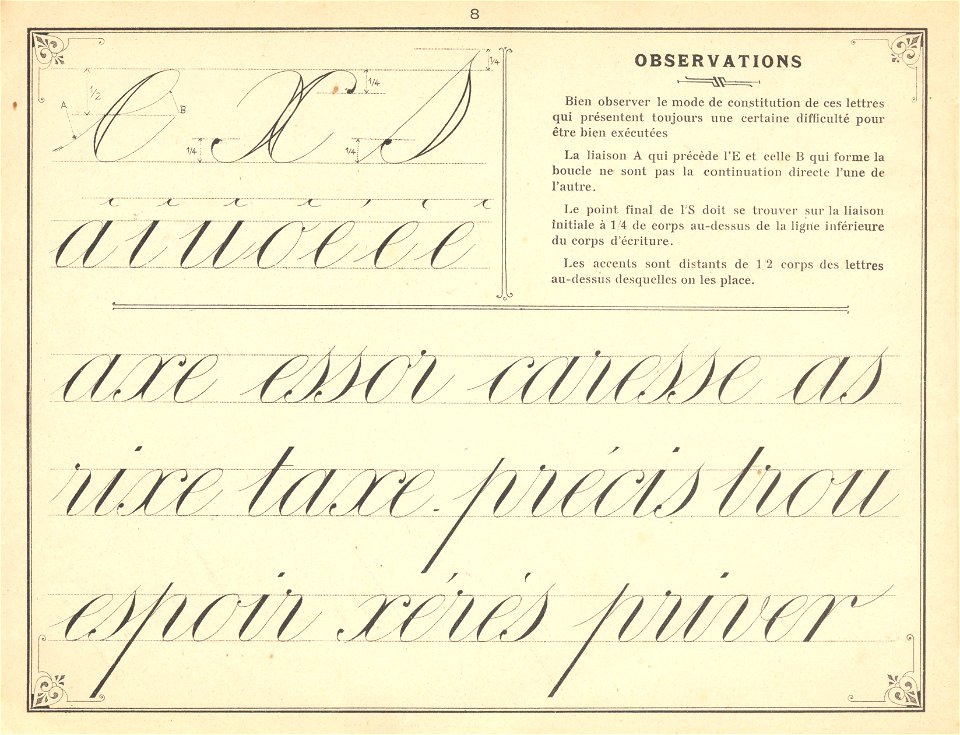 8
e x s
1/2 A B 1/4 1/4 1/4 1/4
OBSERVATIONS
Bien observer le mode de constitution de ces lettres
qui présentent toujours une certaine difficulté pour
être bien exécutées
La liaison A qui précède l'E et celle B qui forme la
boucle ne sont pas la continuation directe l'une de
l'autre.
Le point final de l'S doit se trouver sur la liaison
initiale à 1/4 de corps au-dessus de la ligne inférieure
du corps d'écriture.
Les accents sont distants de 1/2 corps des lettres
au-dessus desquelles on les place.
axe essor caresse as
rixe taxe. précis trou
espoir xérés priver